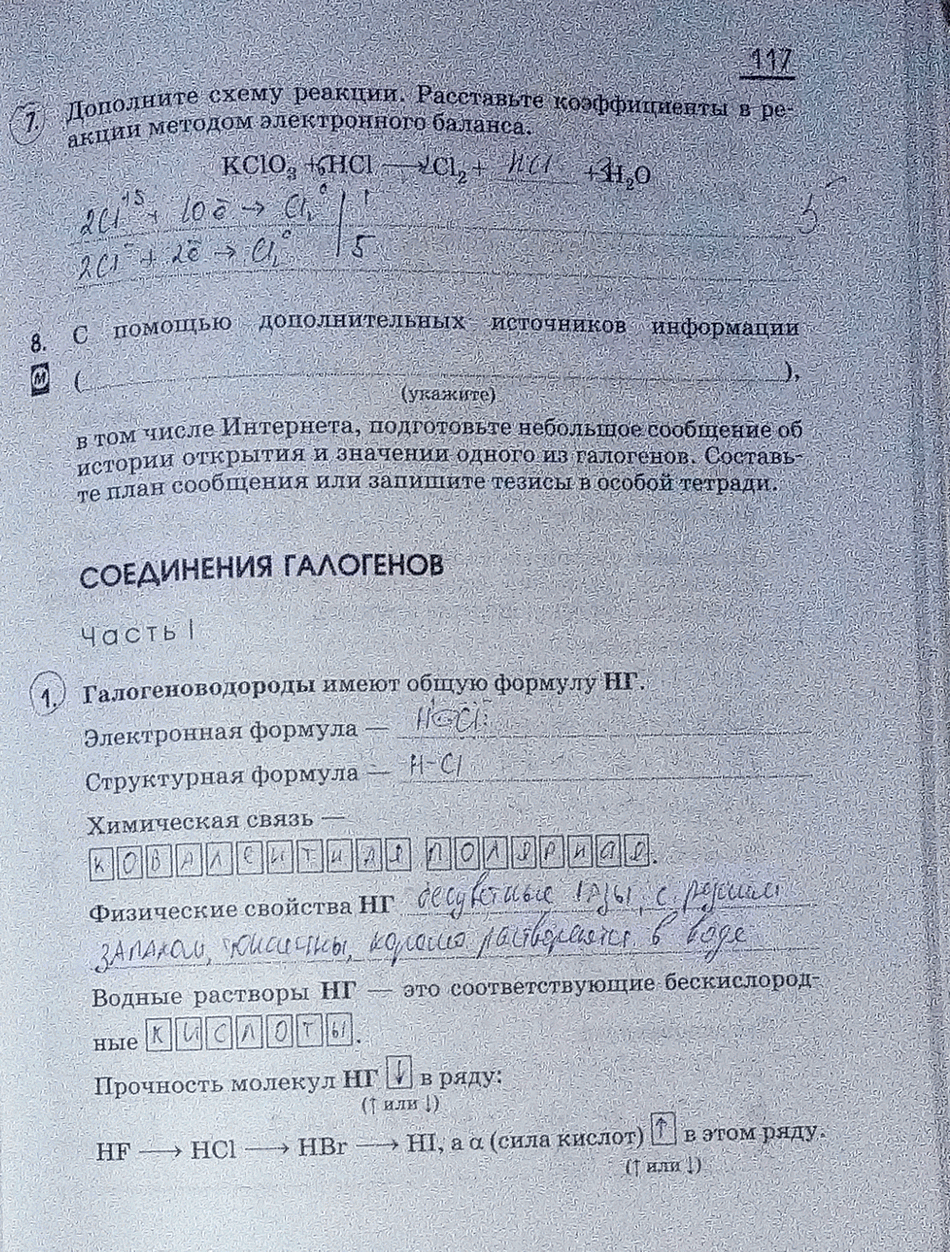 117
7. Дополните схему реакции. Расставьте коэффициенты в ре-
акции методом электронного баланса.
KClO₃ + 6HCl ⟶ Cl₂ + HCl + 3H₂O
2Cl⁺⁵ + 10ē → Cl₂⁰ | 1
5
2Cl⁻ + 2ē → Cl₂⁰ | 5
8. С помощью дополнительных источников информации
М ( ),
(укажите)
в том числе Интернета, подготовьте небольшое сообщение об
истории открытия и значении одного из галогенов. Составь-
те план сообщения или запишите тезисы в особой тетради.
СОЕДИНЕНИЯ ГАЛОГЕНОВ
Часть I
1. Галогеноводороды имеют общую формулу НГ.
Электронная формула — H Cl:
Структурная формула — H-Cl
Химическая связь —
КОВАЛЕНТНАЯ ПОЛЯРНАЯ.
Физические свойства НГ бесцветные газы, с резким
запахом, токсичны, хорошо растворяются в воде
Водные растворы НГ — это соответствующие бескислород-
ные КИСЛОТЫ.
Прочность молекул НГ ↓ в ряду:
(↑ или ↓)
HF ⟶ HCl ⟶ HBr ⟶ HI, а α (сила кислот) ↑ в этом ряду.
(↑ или ↓)